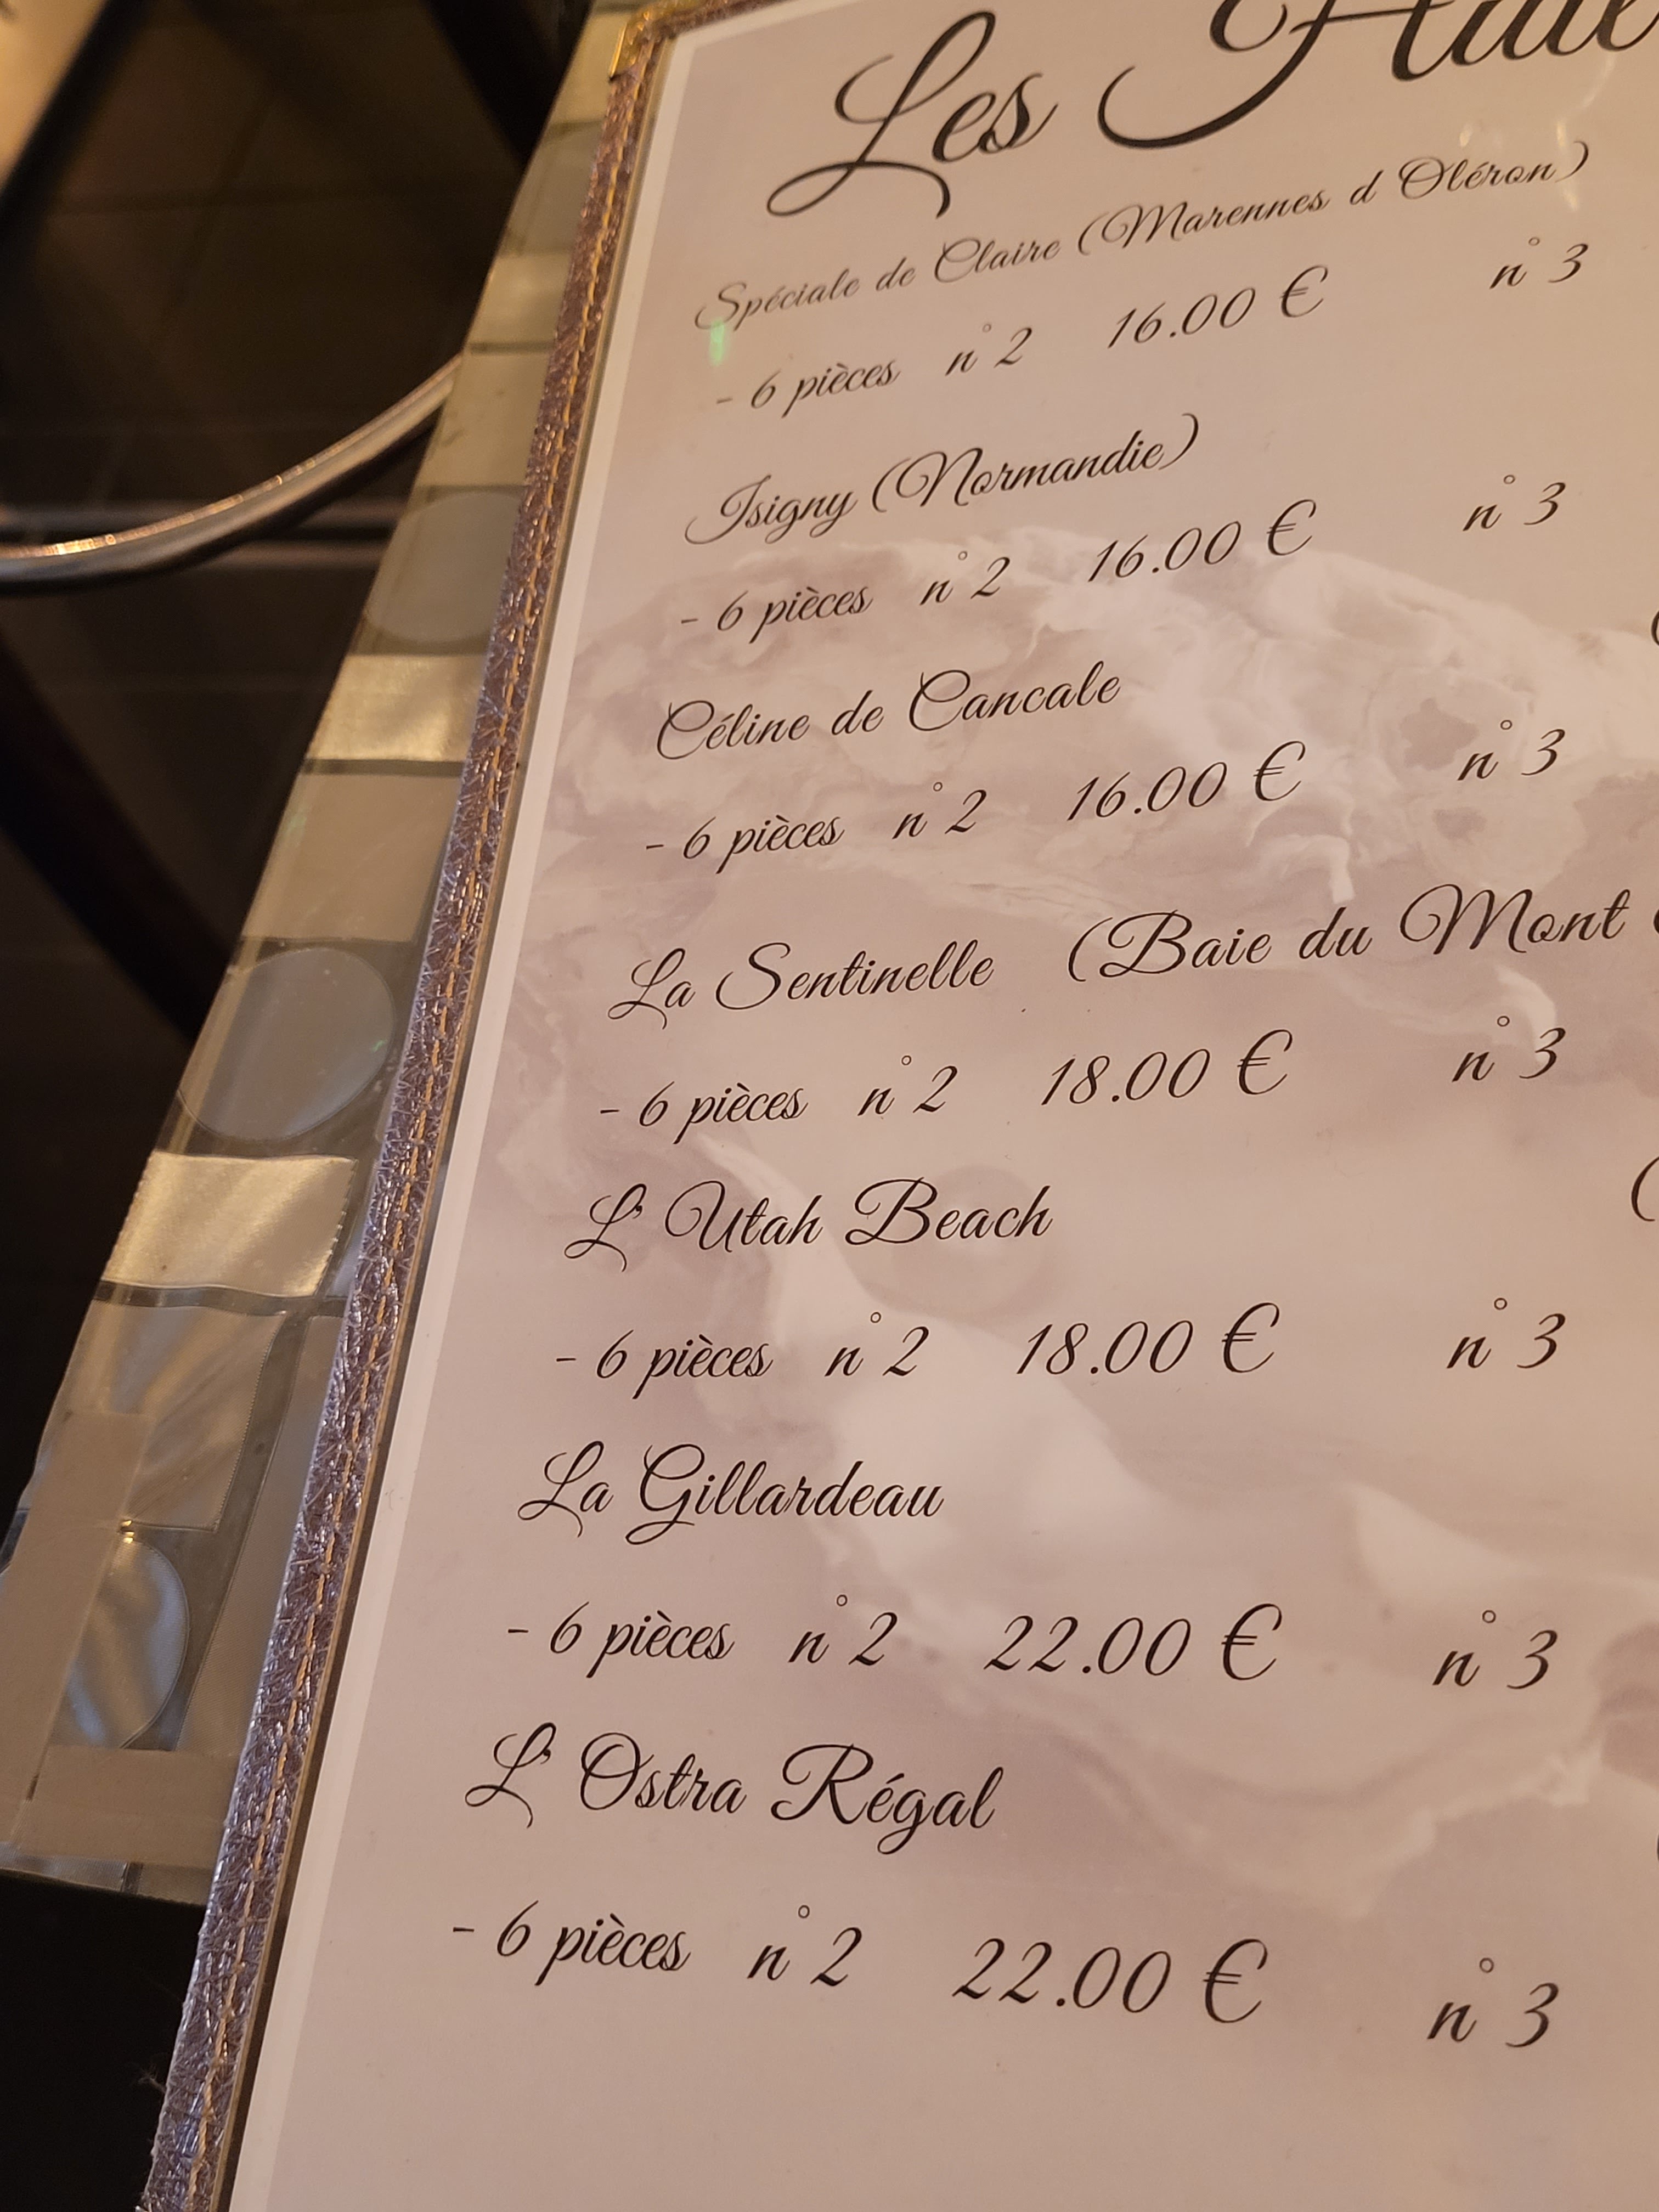 Les
Spéciale de Claire (Marennes d Oléron)
- 6 pièces n° 2 16.00 € n° 3
Isigny (Normandie)
- 6 pièces n° 2 16.00 € n° 3
Céline de Cancale
- 6 pièces n° 2 16.00 € n° 3
La Sentinelle (Baie du Mont
- 6 pièces n° 2 18.00 € n° 3
L' Utah Beach
- 6 pièces n° 2 18.00 € n° 3
La Gillardeau
- 6 pièces n° 2 22.00 € n° 3
L' Ostra Régal
- 6 pièces n° 2 22.00 € n° 3